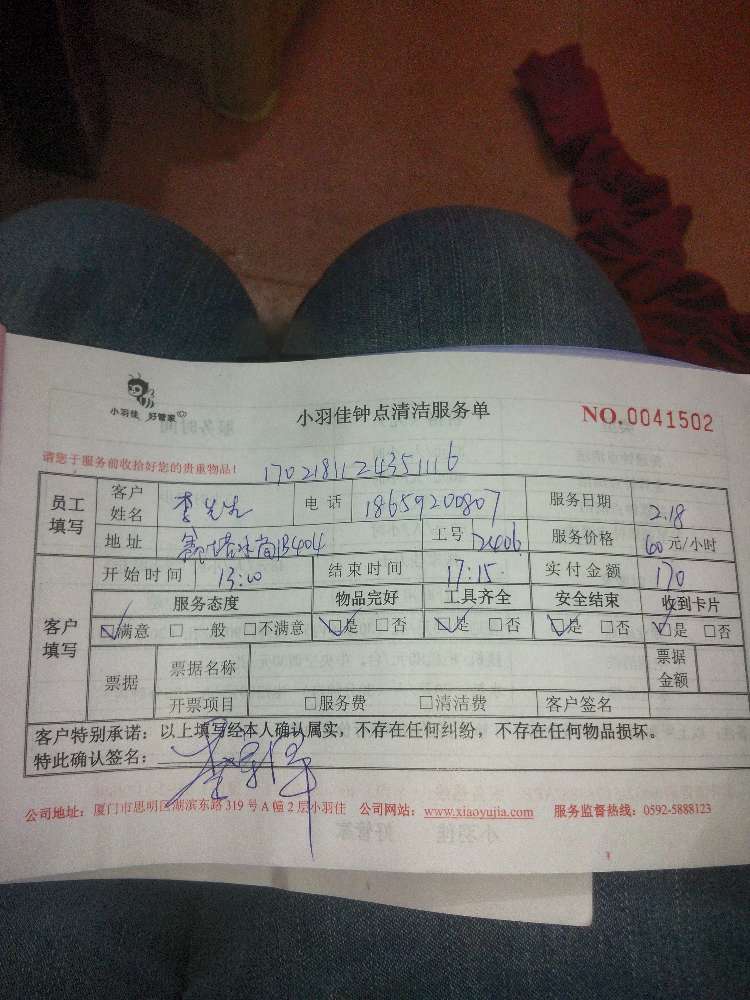 小羽佳 好管家
小羽佳钟点清洁服务单
NO.0041502
请您于服务前收拾好您的贵重物品!
1702181124351116
员工填写 客户姓名 李先生 电话 18659200807 服务日期 2.18
地址 B404 工号 2406 服务价格 60元/小时
客户填写 开始时间 13:00 结束时间 17:15. 实付金额 170
服务态度 物品完好 工具齐全 安全结束 收到卡片
☑满意 □一般 □不满意 ☑是 □否 ☑是 □否 ☑是 □否 ☑是 □否
票据 票据名称 票据金额
开票项目 □服务费 □清洁费 客户签名
客户特别承诺:以上填写经本人确认属实,不存在任何纠纷,不存在任何物品损坏。
特此确认签名:
公司地址:厦门市思明区湖滨东路319号A幢2层小羽佳 公司网站:www.xiaoyujia.com 服务监督热线:0592-5888123